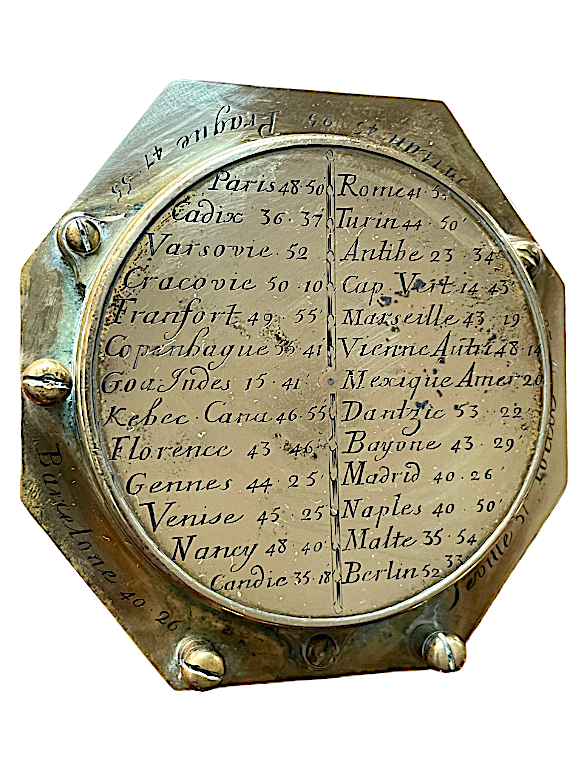 Prague 47 55
Milan 45 25
Paris 48·50
Cadix 36·37
Varsovie 52
Cracovie 50 10
Franfort 49·55
Copenhague 55 41
Goa Indes 15·41
Kebec Cana 46·55
Florence 43 46
Gennes 44 25
Venise 45 25
Nancy 48 40
Candie 35·18
Rome 41·
Turin 44·50'
Antibe 23·34
Cap Vert 14 43
Marseille 43·19
Vienne Autri 48·14
Mexique Amer 20
Dantzic 53·22
Bayone 43·29'
Madrid 40·26'
Naples 40·50'
Malte 35·54
Berlin 52 33
Barcelone 40 26'
51